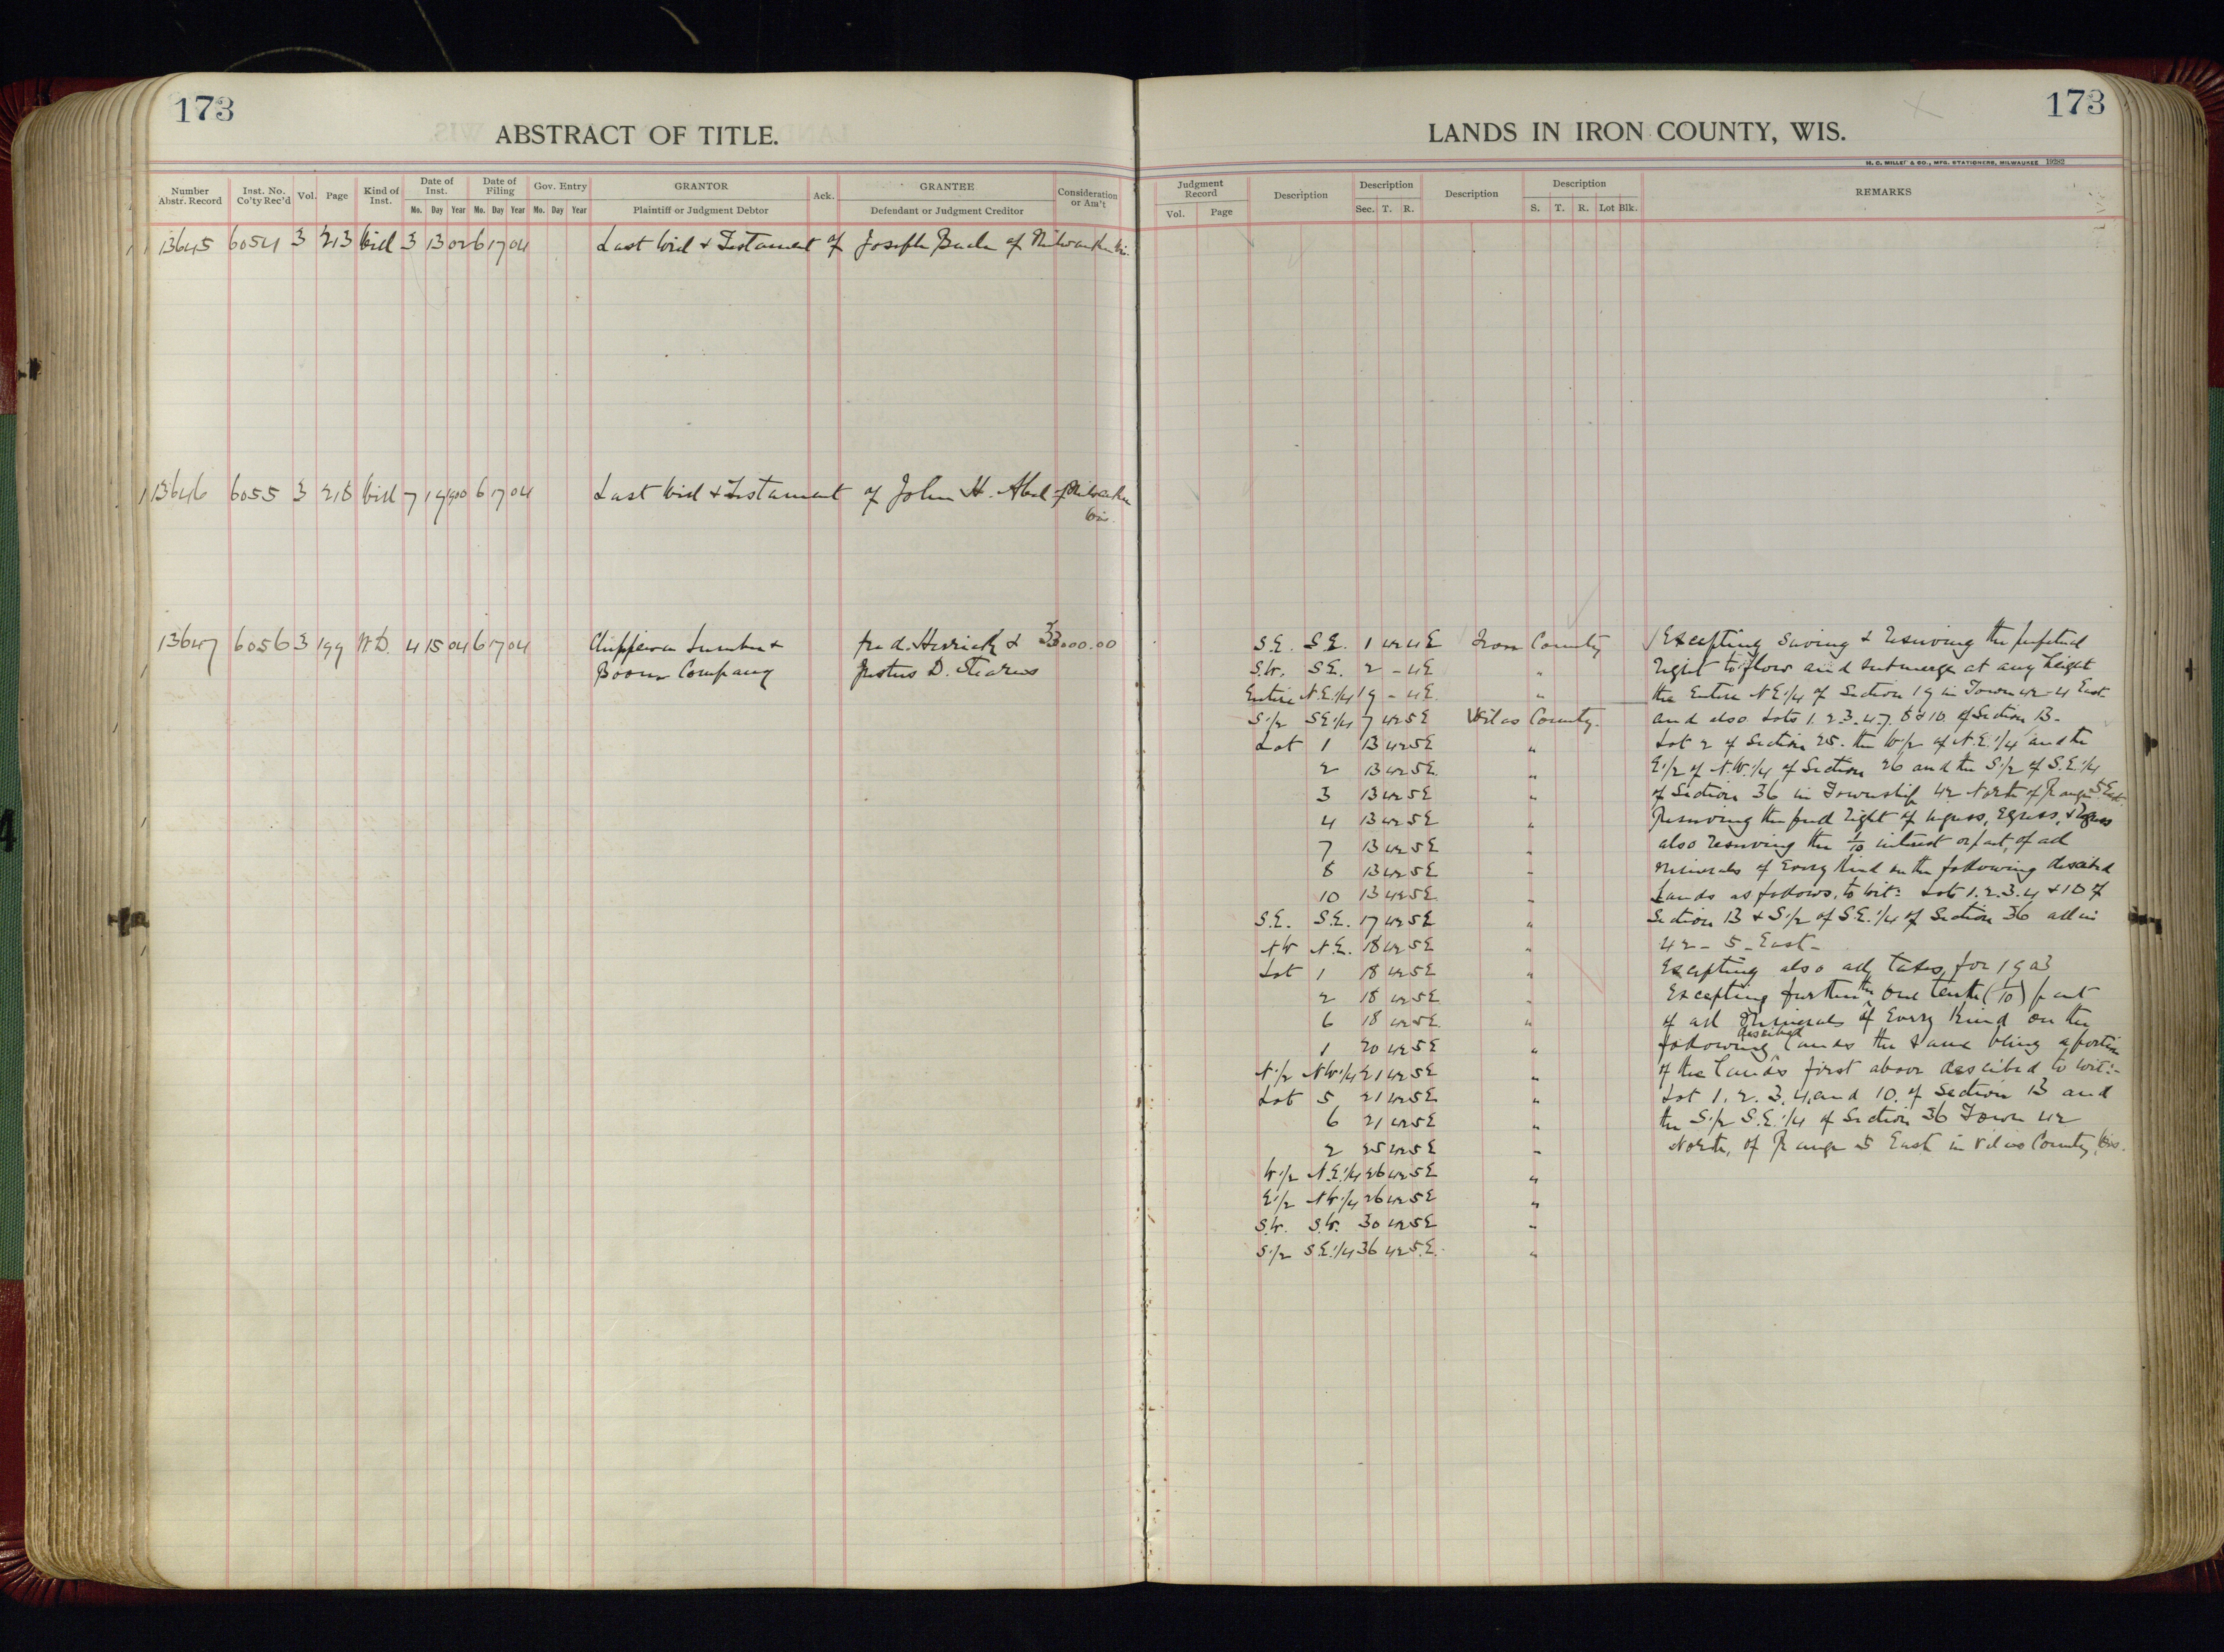 173
ABSTRACT OF TITLE.
Number Abstr. Record Inst. No. Co'ty Rec'd Vol. Page Kind of Inst. Date of Inst. Mo. Day Year Date of Filing Mo. Day Year Gov. Entry Mo. Day Year GRANTOR Plaintiff or Judgment Debtor Ack. GRANTEE Defendant or Judgment Creditor Consideration or Am't
13645 6054 3 213 Will 3 13 02 6 17 04 Last Will & Testament of Joseph of Milwaukee Wis.
13646 6055 3 218 Will 7 19 1900 6 17 04 Last Will & Testament of John H. Abel of Milwaukee
Wis.
13647 6056 3 199 W.D. 4 15 04 6 17 04 Chippewa Lumber & Fred. Herrick & 33000.00
Boom Company Justus D. Stearns
173
LANDS IN IRON COUNTY, WIS.
H. C. MILLER & CO., MFG. STATIONERS, MILWAUKEE 19282
Judgment Record Vol. Page Description Description Sec. T. R. Description Description S. T. R. Lot Blk. REMARKS
S.E. S.E. 1 42 4E Iron County Excepting Saving & Reserving the perpetual
S.W. S.E. 2 - 4E " right to flow and submerge at any height
Entire N.E.1/4 19 - 4E. " the Entire N.E.1/4 of Section 19 in Town 42-4 East
S.1/2 S.E.1/4 7 42 5E Vilas County. and also Lots 1.2.3.4.7.8 & 10 of Section 13-
Lot 1 13 42 5E " Lot 2 of Section 25. the W1/2 of N.E.1/4 and the
2 13 42 5E. " E.1/2 of N.W.1/4 of Section 26 and the S.1/2 of S.E.1/4
3 13 42 5E " of Section 36 in Township 42 North of Range 5 East.
4 13 42 5E " Reserving the full right of ingress, Egress, & Regress
7 13 42 5E " also reserving the 1/10 interest or part, of all
8 13 42 5E " minerals of Every Kind on the following described
10 13 42 5E. " Lands as follows, to wit: Lot 1.2.3.4 & 10 of
S.E. S.E. 17 42 5E " Section 13 & S.1/2 of S.E.1/4 of Section 36 all in
N.W N.E. 18 42 5E " 42 - 5 - East -
Lot 1 18 42 5E " Excepting also all taxes for 1903
2 18 42 5E " Excepting further the One tenth (1/10) part
6 18 42 5E. " of all Minerals of Every Kind on the
1 20 42 5E " following described lands the same being a portion
N.1/2 N.W.1/4 21 42 5E " of the lands first above described to wit:-
Lot 5 21 42 5E " Lot 1. 2. 3. 4, and 10. of Section 13 and
6 21 42 5E " the S.1/2 S.E.1/4 of Section 36 Town 42
2 25 42 5E " North, of Range 5 East in Vilas County, Wis.
W.1/2 N.E.1/4 26 42 5E "
E.1/2 N.W.1/4 26 42 5E "
S.W. S.W. 30 42 5E "
S.1/2 S.E.1/4 36 42 5.E. "